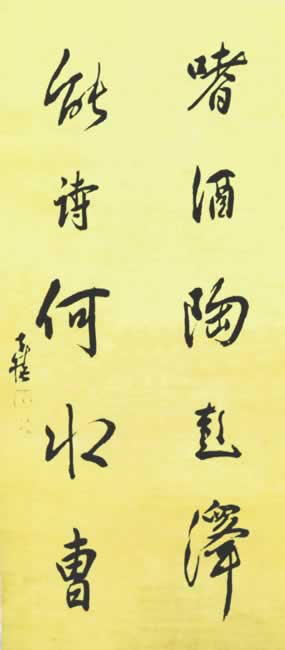 嗜酒陶彭澤
能詩何水曹